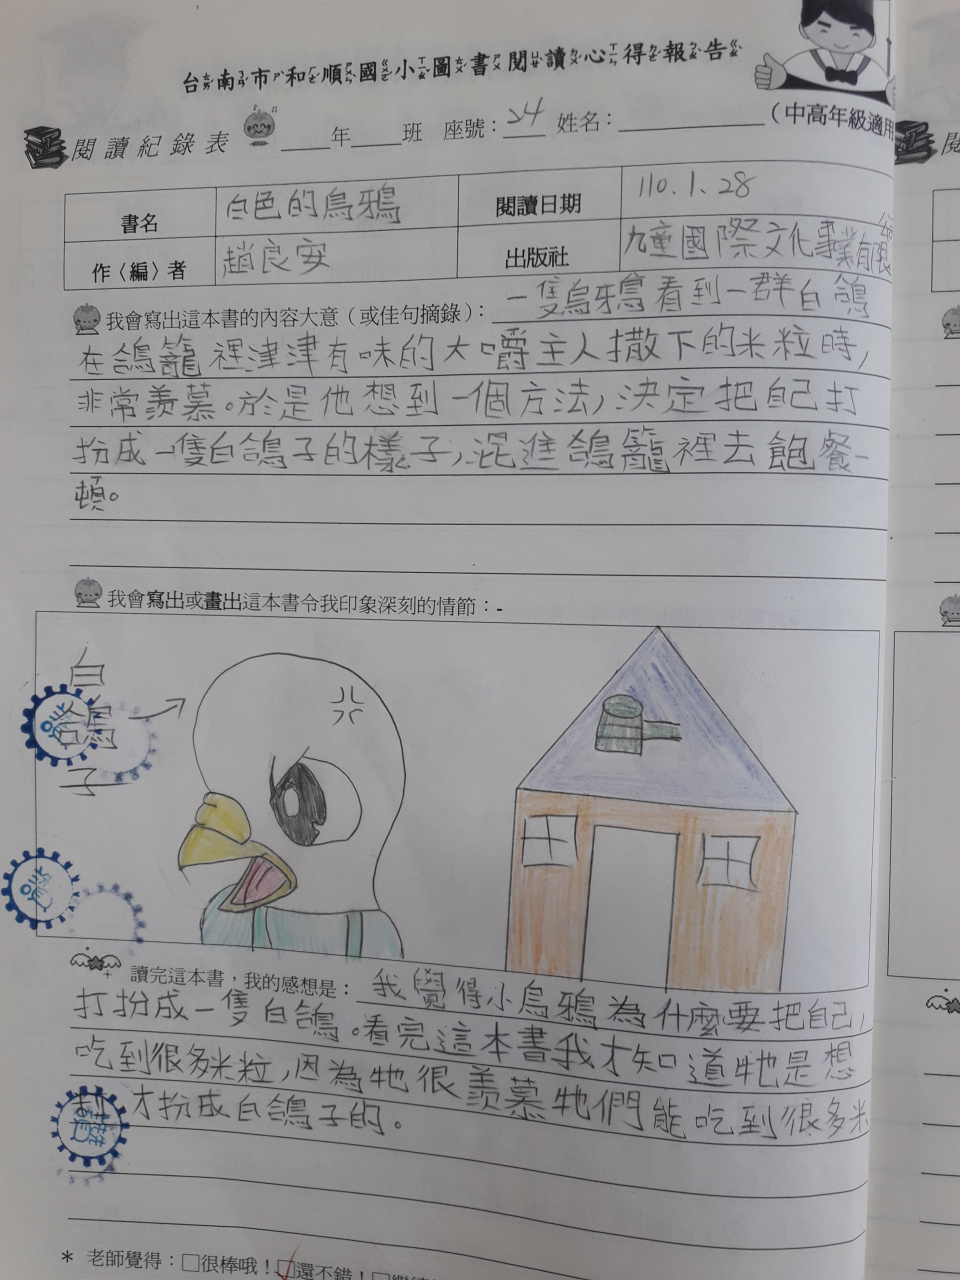 台南市和順國小圖書閱讀心得報告
閱讀紀錄表 ____年____班 座號：24 姓名：________ （中高年級適用
書名 白色的烏鴉 閱讀日期 110.1.28
作〈編〉者 趙良安 出版社 九童國際文化事業有限
我會寫出這本書的內容大意（或佳句摘錄）：一隻烏鴉看到一群白鴿
在鴿籠裡津津有味的大嚼主人撒下的米粒時，
非常羨慕。於是他想到一個方法，決定把自己打
扮成一隻白鴿子的樣子，混進鴿籠裡去飽餐一
頓。
我會寫出或畫出這本書令我印象深刻的情節：-
白鴿子
讀完這本書，我的感想是：我覺得小烏鴉為什麼要把自己，
打扮成一隻白鴿。看完這本書我才知道牠是想
吃到很多米粒，因為牠很羨慕牠們能吃到很多米
才扮成白鴿子的。
* 老師覺得：□很棒哦！☑還不錯！□